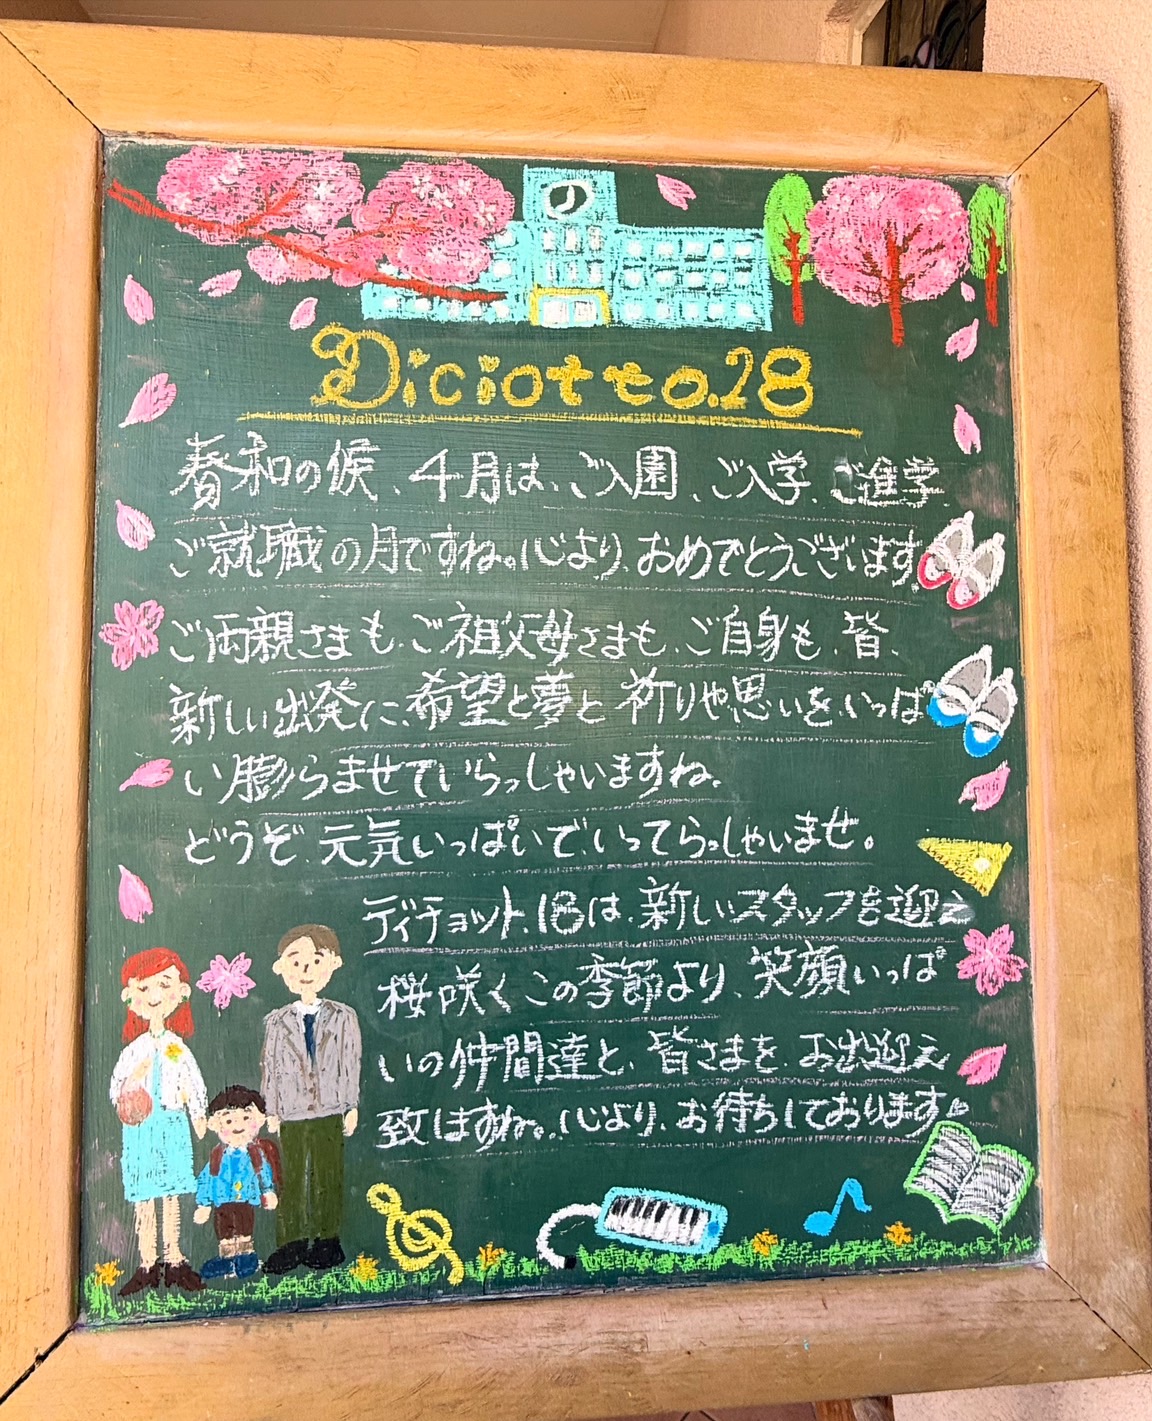 Diciotto.28
春和の候、4月は、ご入園、ご入学、ご進学
ご就職の月ですね。心より、おめでとうございます。
ご両親さまも、ご祖父母さまも、ご自身も、皆、
新しい出発に、希望と夢と祈りや思いを、いっぱ
い膨らませていらっしゃいますね。
どうぞ、元気いっぱいで、いってらっしゃいませ。
ディチョット.18は、新しいスタッフを迎え
桜咲くこの季節より、笑顔いっぱ
いの仲間達と、皆さまを、お出迎え
致しますね。心より、お待ちしております。